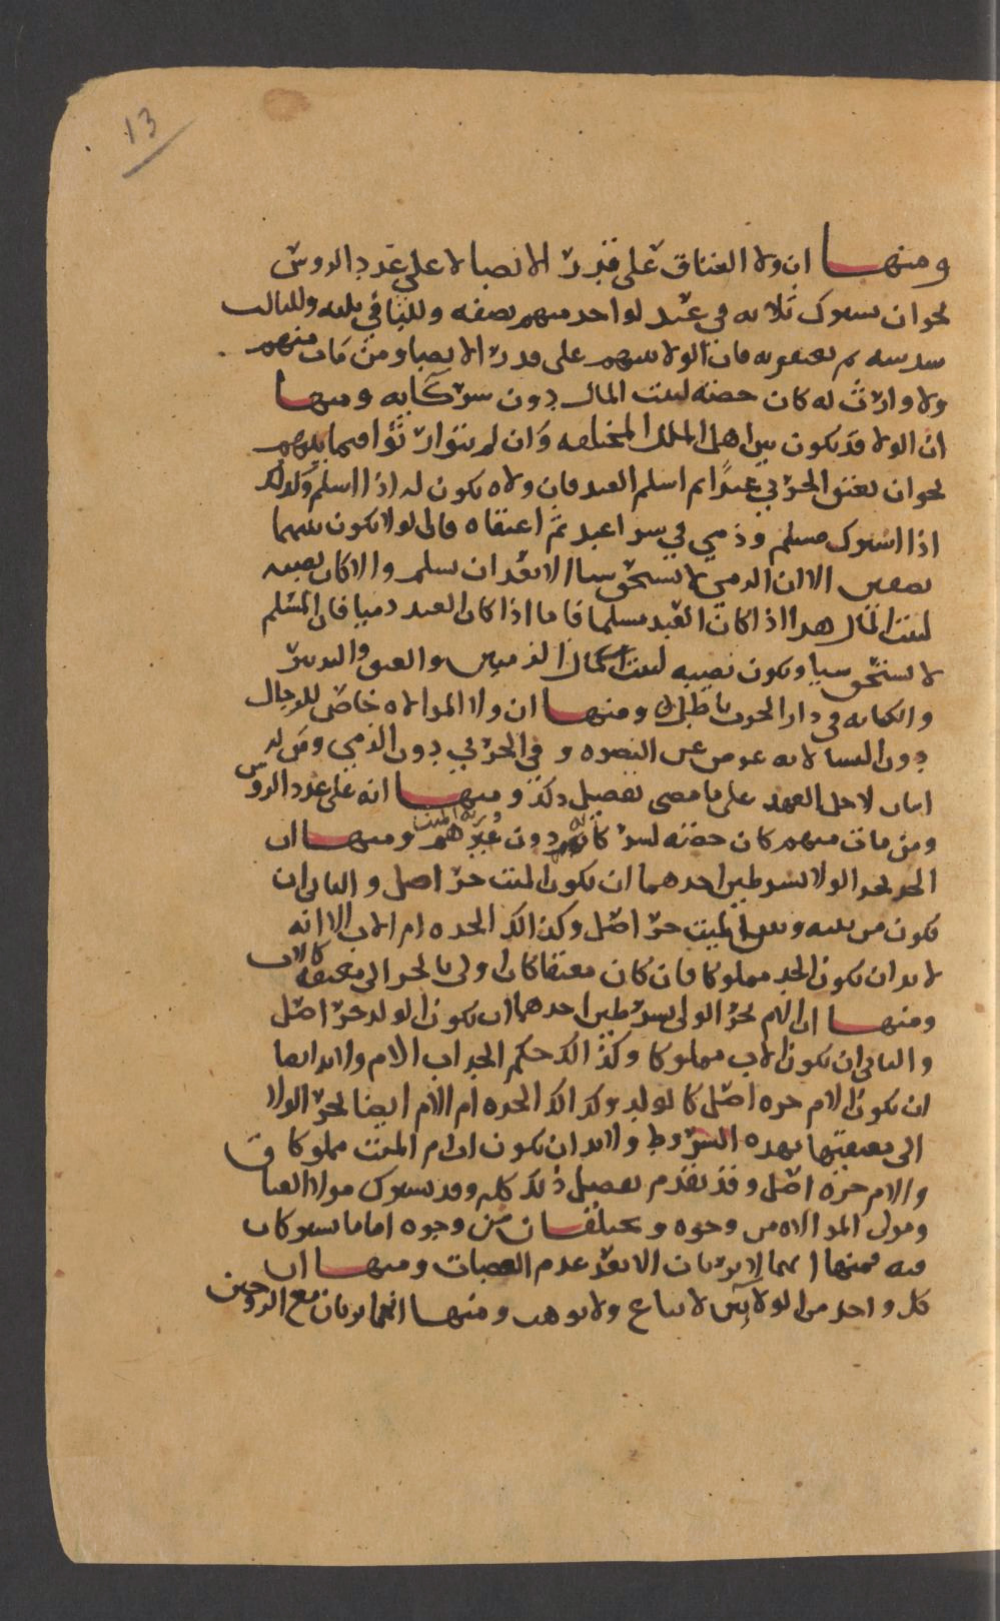 13
ومنها ان ولا العتاق على قدر الانصبا لا على عدد الروس
نحو ان يشترك ثلاثه في عبد لواحد منهم نصفه وللثاني ثلثه وللثالث
سدسه ثم يعتقونه فان الولا بينهم على قدر الانصبا ومن مات منهم
ولا وارث له كان حصته لبيت المال دون شركايه ومنها
ان الولا قد يكون بين اهل الملل المختلفه وان لم يتوارثوا فيما بينهم
نحو ان يعتق الحربي عبدا ثم اسلم العبد فان ولاه يكون له اذا اسلم وكذلك
اذا اشترك مسلم وذمي في شرا عبد ثم اعتقاه فالولا يكون بينهما
نصفين الا ان الذمي لا يستحق شيا الا بعد ان يسلم والا كان نصيبه
لبيت المال هذا اذا كان العبد مسلما فاما اذا كان العبد ذميا فان المسلم
لا يستحق شيا ويكون نصيبه لبيت المال الذميين والعتق والتدبير
والكتابه في دار الحرب باطل ومنها ان ولا الموالاه خاص للرجال
دون النسا لانه عوض عن النصره وفي الحربي دون الذمي ومن له
امان لاجل العهد على ما مضى تفصيل ذلك ومنها انه على عدد الروس
ومن مات منهم كان حصته لشركايه دون غيرهم ومنها ان
الجد يجر الولا بشرطين احدهما ان يكون الميت حر اصل والثاني ان
يكون من بينه وبين الميت حر اصل وكذلك الجده ام الاب الا انه
لا بد ان يكون الجد مملوكا فان كان معتقا كان اولى بالجر الى معتقه كالاب
ومنها ان الام تجر الولى بشرطين احدهما ان يكون الولد حر اصل
والثاني ان يكون الاب مملوكا وكذلك حكم الجد اب الام ولا بد ايضا
ان يكون الام حره اصل كالولد وكذلك الجده ام الام ايضا تجر الولا
الى معتقها بهذه الشروط ولا بد ان يكون اب ام الميت مملوكا
والام حره اصل وقد تقدم تفصيل ذلك كله وقد يشترك مولا العتاق
ومولى الموالاه من وجوه ويختلفان من وجوه اما ما يشتركان
فيه فمنها انهما لا يرثان الا بعد عدم العصبات ومنها ان
كل واحد من الولايين لا يباع ولا يوهب ومنها انهما يرثان مع الزوجين